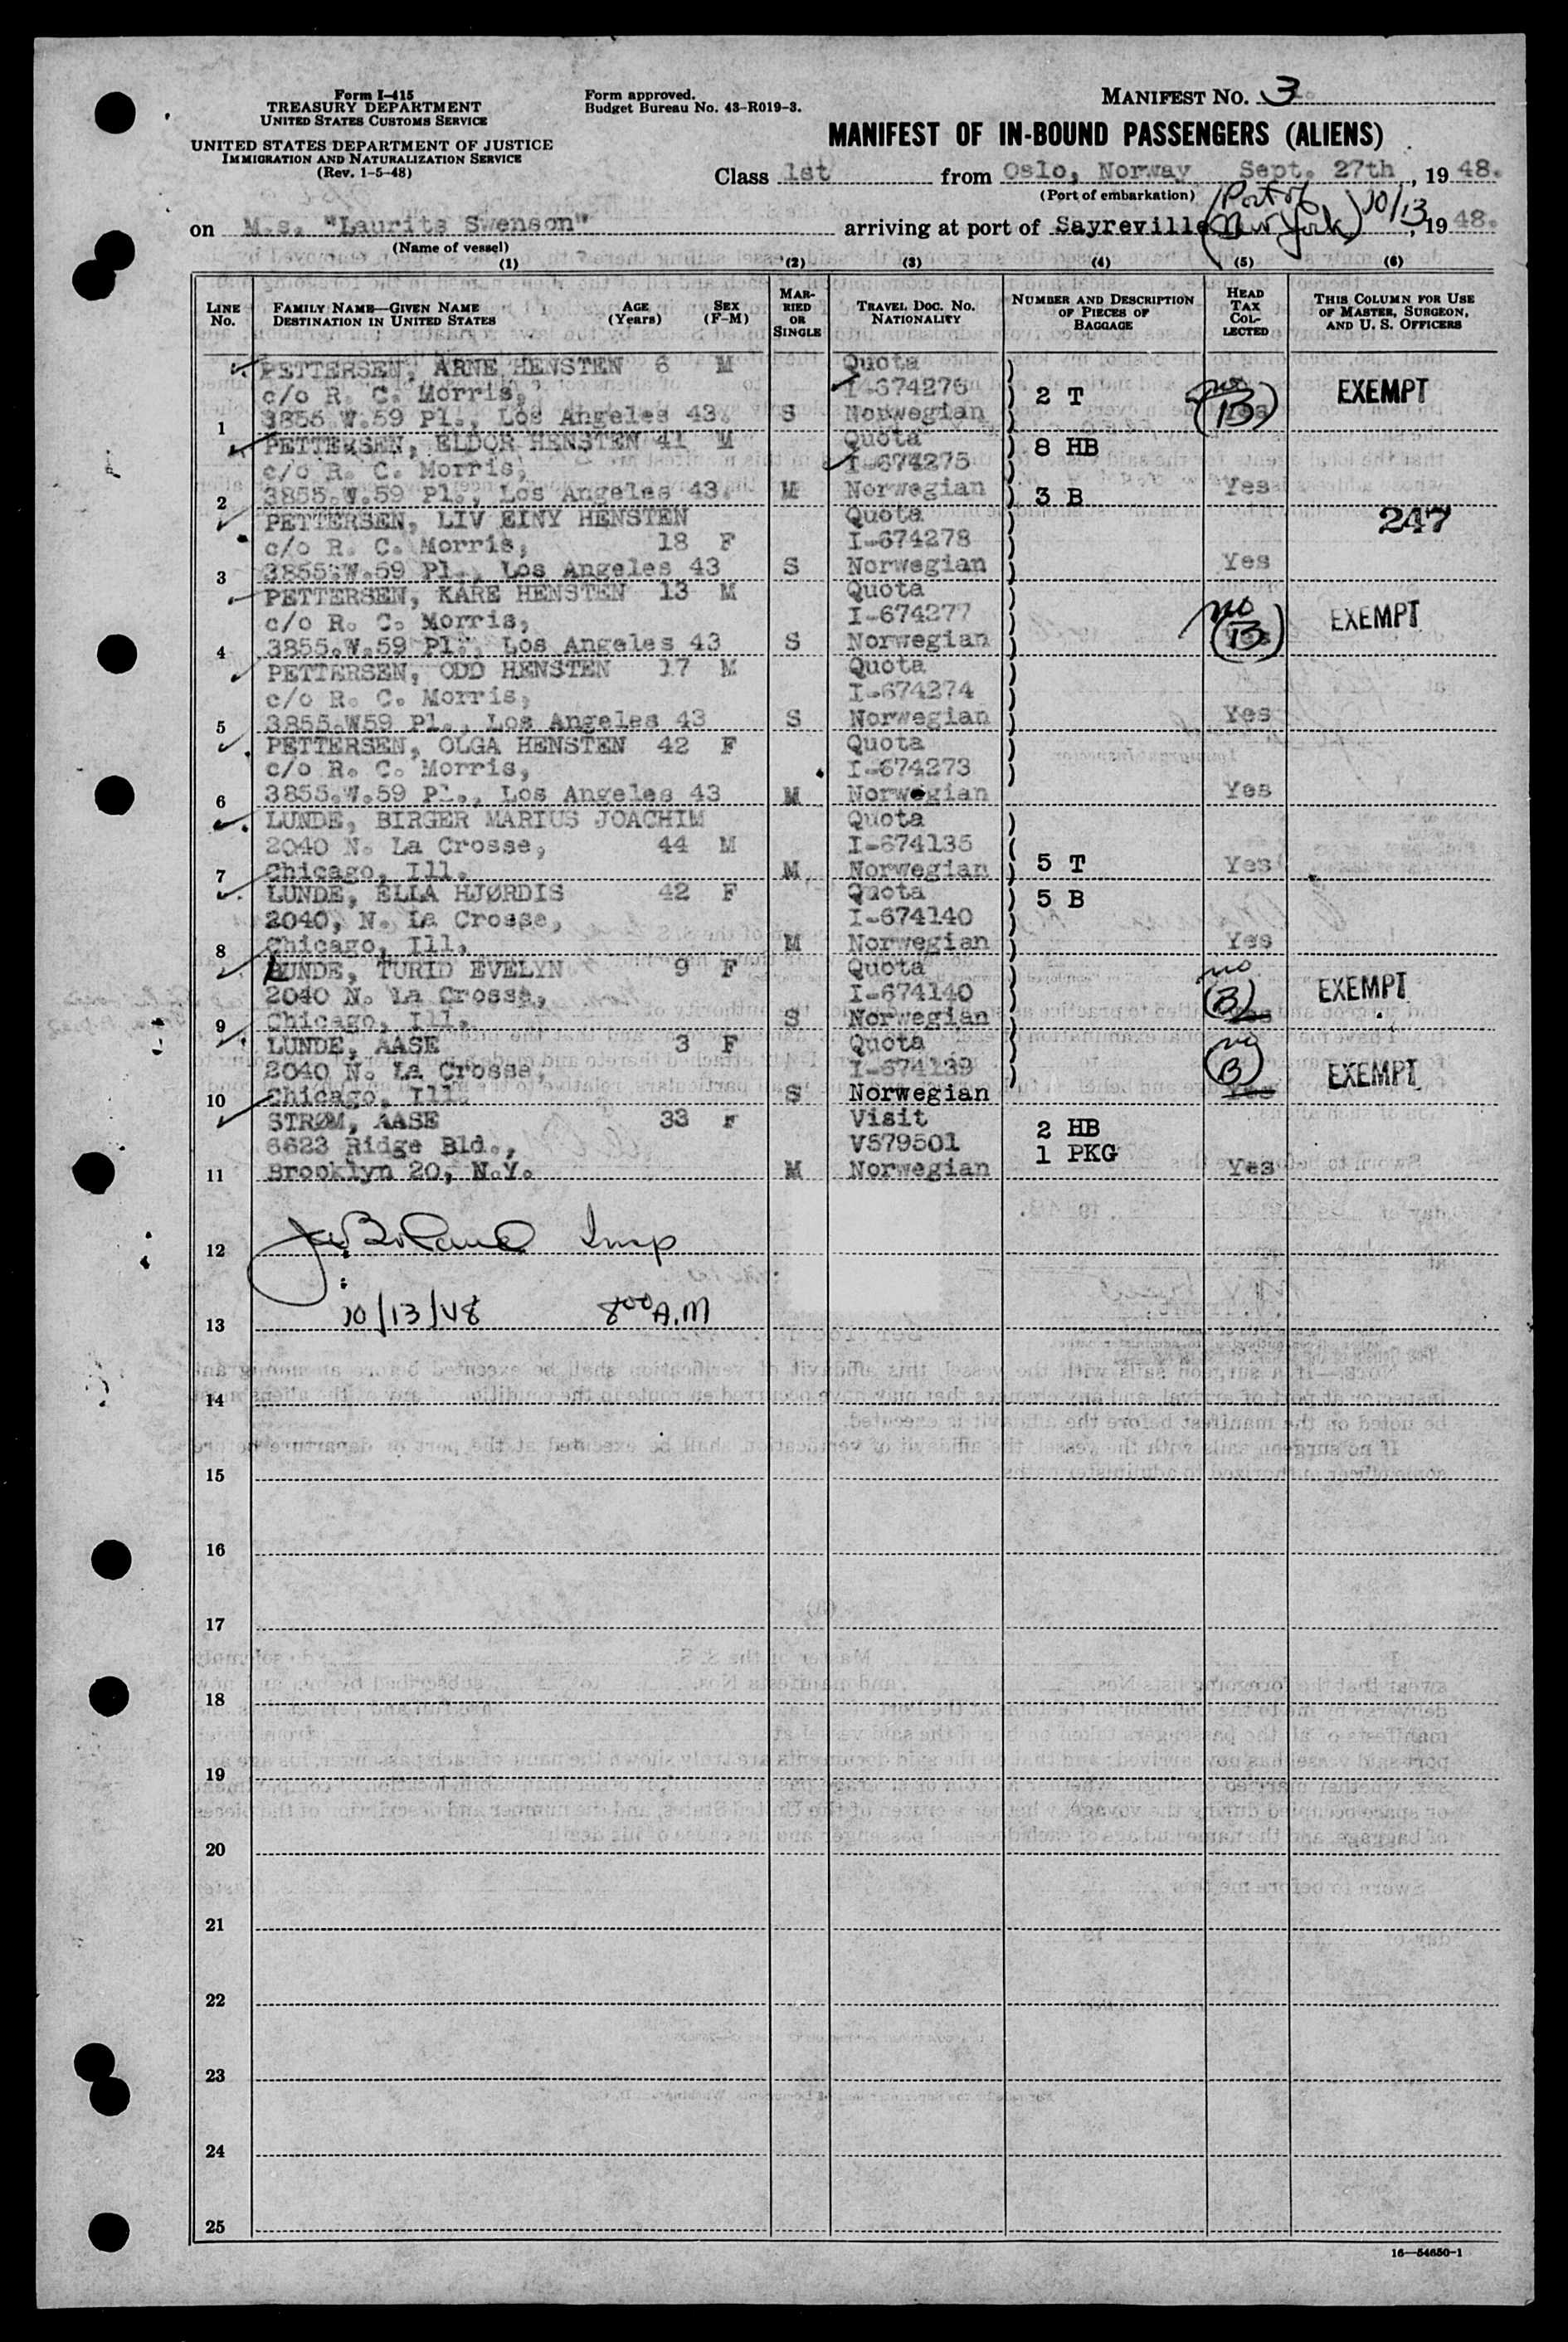 Form I-415
TREASURY DEPARTMENT
UNITED STATES CUSTOMS SERVICE
UNITED STATES DEPARTMENT OF JUSTICE
IMMIGRATION AND NATURALIZATION SERVICE
(Rev. 1-5-48)
Form approved.
Budget Bureau No. 43-R019-3.
MANIFEST NO. 3
MANIFEST OF IN-BOUND PASSENGERS (ALIENS)
Class 1st from Oslo, Norway Sept. 27th, 1948.
(Port of embarkation)
on M.s. "Laurits Swenson" arriving at port of Sayreville (Port of New York) 10/13, 1948.
(Name of vessel)
(1) (2) (3) (4) (5) (6)
LINE No. FAMILY NAME—GIVEN NAME DESTINATION IN UNITED STATES AGE (Years) SEX (F-M) MARRIED OR SINGLE TRAVEL DOC. NO. NATIONALITY NUMBER AND DESCRIPTION OF PIECES OF BAGGAGE HEAD TAX COLLECTED THIS COLUMN FOR USE OF MASTER, SURGEON, AND U. S. OFFICERS
PETTERSEN, ARNE HENSTEN 6 M Quota
c/o R. C. Morris, I-674276 2 T no (B) EXEMPT
1 3855 W.59 Pl., Los Angeles 43. S Norwegian Yes
PETTERSEN, ELDOR HENSTEN 41 M Quota 8 HB
c/o R. C. Morris, I-674275
2 3855.W.59 Pl., Los Angeles 43. M Norwegian 3 B Yes
PETTERSEN, LIV EINY HENSTEN Quota 247
c/o R. C. Morris, 18 F I-674278
3 3855.W.59 Pl., Los Angeles 43 S Norwegian Yes
PETTERSEN, KARE HENSTEN 13 M Quota
c/o R. C. Morris, I-674277 no EXEMPT
4 3855.W.59 Pl., Los Angeles 43 S Norwegian (B) Yes
PETTERSEN, ODD HENSTEN 17 M Quota
c/o R. C. Morris, I-674274
5 3855.W59 Pl., Los Angeles 43 S Norwegian Yes
PETTERSEN, OLGA HENSTEN 42 F Quota
c/o R. C. Morris, I-674273
6 3855.W.59 Pl., Los Angeles 43 M Norwegian Yes
LUNDE, BIRGER MARIUS JOACHIM Quota
2040 N. La Crosse, 44 M I-674135
7 Chicago, Ill. M Norwegian 5 T Yes
LUNDE, ELLA HJØRDIS 42 F Quota 5 B
2040, N. La Crosse, I-674140
8 Chicago, Ill. M Norwegian Yes
LUNDE, TURID EVELYN 9 F Quota no
2040 N. La Crosse, I-674140 (B) EXEMPT
9 Chicago, Ill. S Norwegian Yes
LUNDE, AASE 3 F Quota no
2040 N. La Crosse, I-674139 (B) EXEMPT
10 Chicago, Ill. S Norwegian Yes
STRØM, AASE 33 F Visit 2 HB
6623 Ridge Bld., V579501 1 PKG
11 Brooklyn 20, N.Y. M Norwegian Yes
12 Insp
13 10/13/48 8 00 A.M
14
15
16
17
18
19
20
21
22
23
24
25
16—54650-1